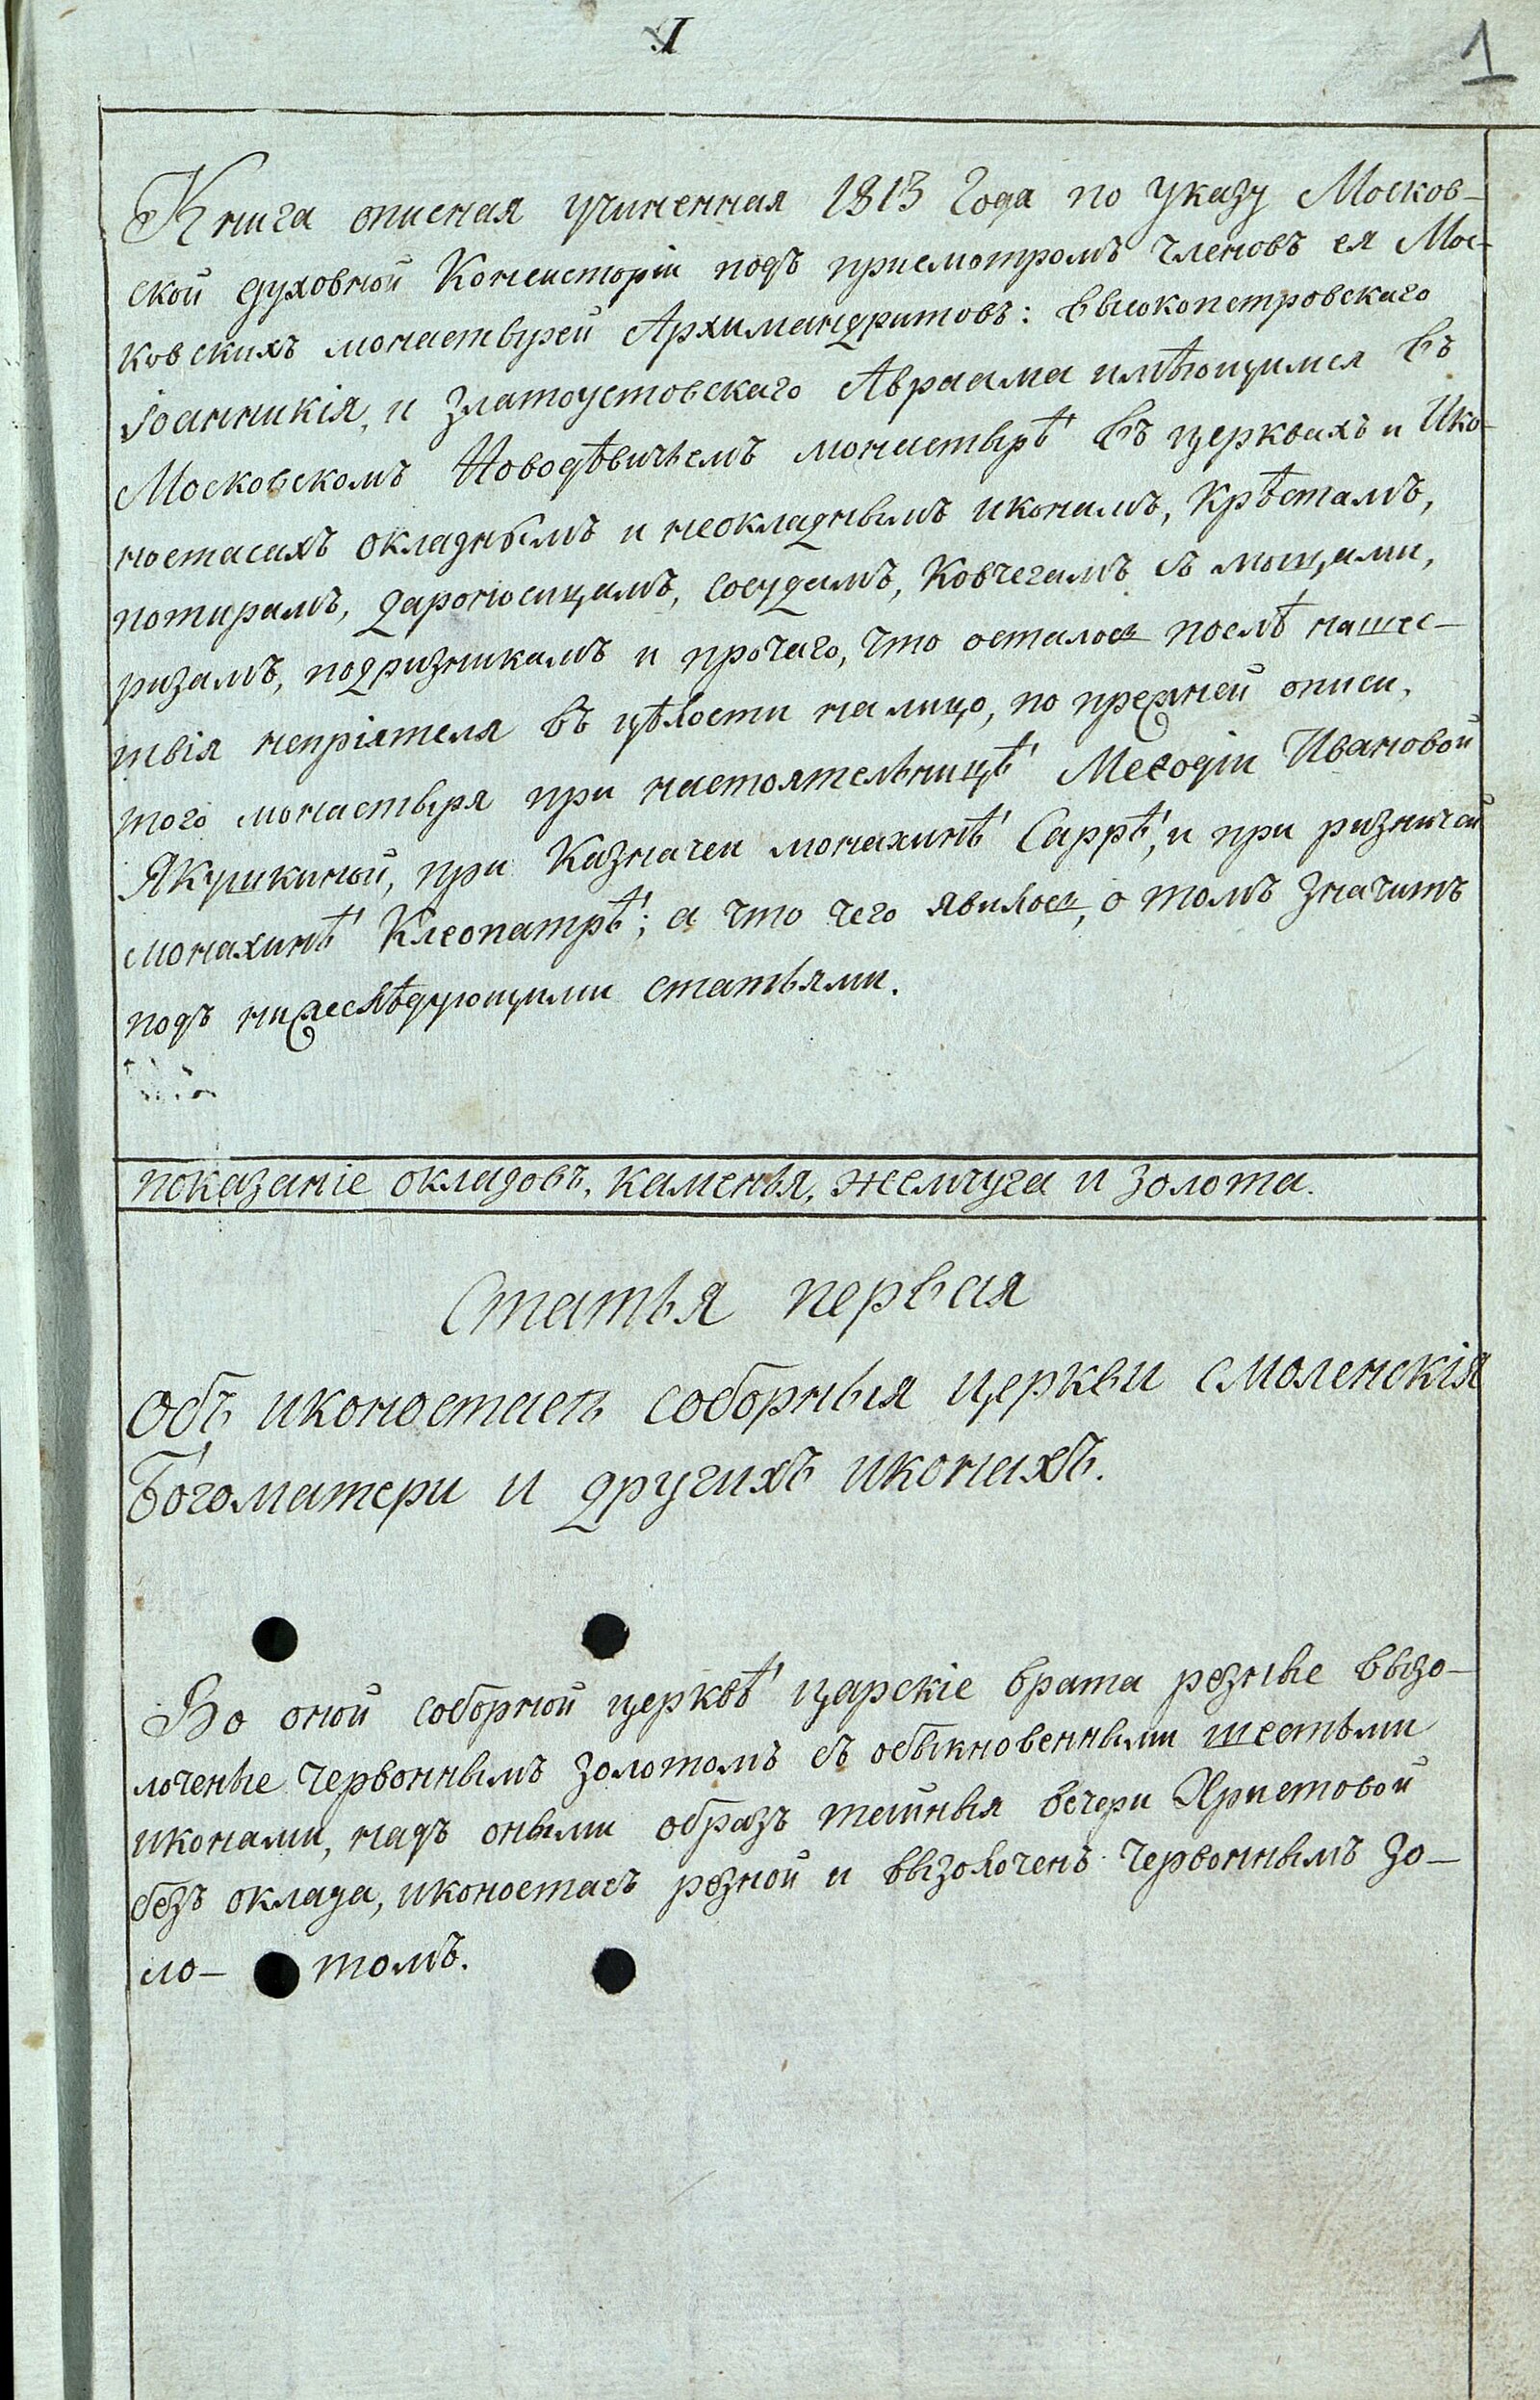 1
1
Книга описная учиненная 1813 Года по указу Москов-
ской духовной Консисторіи подъ присмотромъ членовъ ея Мос-
ковскихъ монастырей Архимандритовъ: Высокопетровскаго
Іоанникія, и Златоустовскаго Авраама имѣющимся въ
Московскомъ Новодѣвичьемъ монастырѣ въ церквахъ и Ико-
ностасахъ окладнымъ и неокладнымъ иконамъ, Крѣстамъ,
потирамъ, дароносицамъ, сосудамъ, Ковчегамъ съ мощами,
ризамъ, подризникамъ и прочаго, что осталось послѣ нашес-
твія непріятеля въ цѣлости налицо, по прежней описи,
того монастыря при настоятельницѣ Меѳодіи Ивановой
Якушкиной, при Казначеи монахинѣ Саррѣ, и при ризничей
монахинѣ Клеопатрѣ; а что чего явилось, о томъ значитъ
подъ нижеслѣдующими статьями.
показаніе окладовъ, каменья, жемчуга и золота.
Статья первая
Объ иконостасѣ соборныя церкви Смоленскія
Богоматери и другихъ иконахъ.
Во оной соборной церквѣ царскіе врата резные вызо-
лоченые червоннымъ золотомъ съ обыкновенными шестьми
иконами, надъ оными образъ тайныя вечери Христовой
безъ оклада, иконостасъ резной и вызолоченъ червоннымъ зо-
ло- томъ.